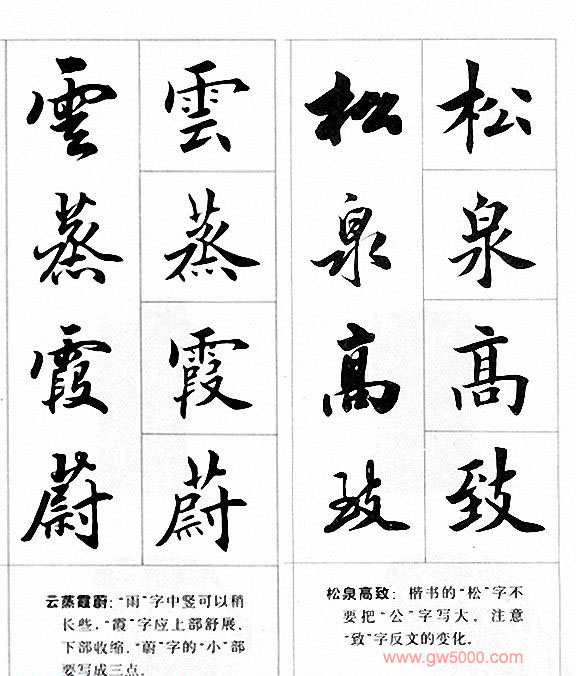 松泉高致
松泉高致
雲蒸霞蔚
雲蒸霞蔚
松泉高致：楷书的“松”字不
要把“公”字写大。注意
“致”字反文的变化。
云蒸霞蔚：“雨”字中竖可以稍
长些，“霞”字应上部舒展，
下部收缩，“蔚”字的“小”部
要写成三点。
www.gw5000.com